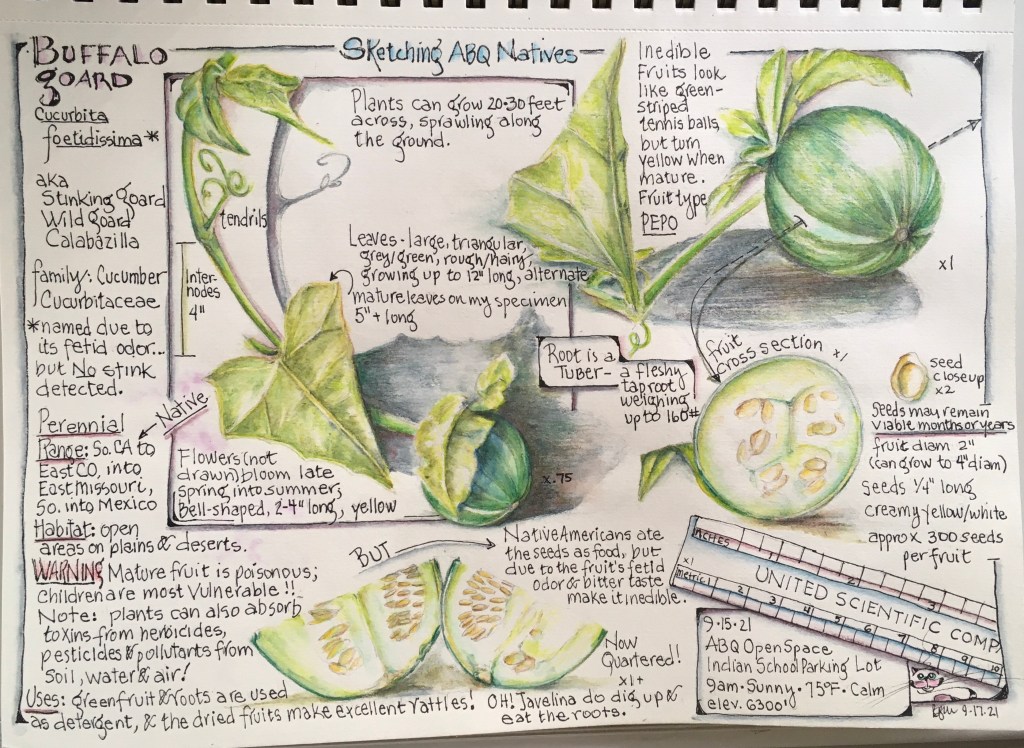 BUFFALO
GOARD
Sketching ABQ Natives
Cucurbita
foetidissima*
aka
Stinking goard
Wild goard
Calabazilla
family: Cucumber
Cucurbitaceae
*named due to
its fetid odor...
but No stink
detected.
Perennial
Native
Range: So. CA to
East CO, into
East Missouri,
So. into Mexico
Habitat: open
areas on plains & deserts.
WARNING Mature fruit is poisonous;
children are most vulnerable!!
Note: plants can also absorb
toxins from herbicides,
pesticides & pollutants from
soil, water & air!
Uses: green fruit & roots are used
as detergent, & the dried fruits make excellent rattles!
Plants can grow 20-30 feet
across, sprawling along
the ground.
tendrils
Inter-
nodes
4"
Leaves - large, triangular,
grey/green, rough/hairy,
growing up to 12" long, alternate
mature leaves on my specimen
5"+ long
Flowers (not
drawn) bloom late
spring into summer,
Bell-shaped, 2-4" long, yellow
x.75
Inedible
Fruits look
like green-
striped
tennis balls,
but turn
yellow when
mature.
Fruit type
PEPO
x1
Root is a
TUBER-
a fleshy
taproot
weighing
up to 160#
fruit
cross section x1
seed
closeup
x2
Seeds may remain
viable months or years
fruit diam 2"
(can grow to 4" diam)
seeds 1/4" long
creamy yellow/white
approx 300 seeds
per fruit
BUT
Native Americans ate
the seeds as food, but
due to the fruit's fetid
odor & bitter taste
make it inedible.
Now
Quartered!
x1+
OH! Javelina do dig up &
eat the roots.
INCHES
2
3
x1
UNITED SCIENTIFIC COMP
METRIC 1 2 3 4 5 6 7 8 9 10
9.15.21
ABQ Open Space
Indian School Parking Lot
9am. Sunny. 75°F. Calm
elev. 6300'
9.17.21